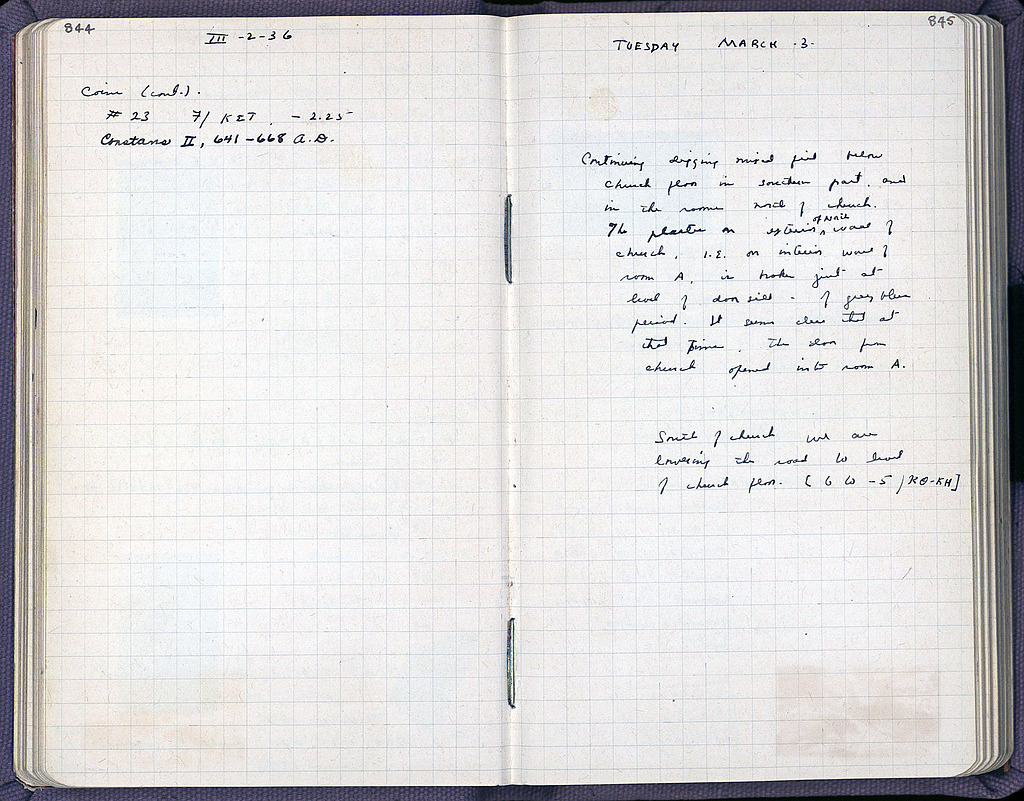 844
III -2-36
Coins (cont.).
# 23 7/ KST. - 2.25
Constans II, 641-668 A.D.
845
TUESDAY MARCH .3.
Continuing digging mixed fill below
church floor in southern part, and
in the rooms north of church.
The plaster on exterior of north wall of
church, I.E. on interior wall of
room A, is broken just at
level of door sill - of grey blue
period. It seems clear that at
that time, the door from
church opened into room A.
South of church we are
lowering the road to level
of church floor. [6 to -5 /KΘ-KH]